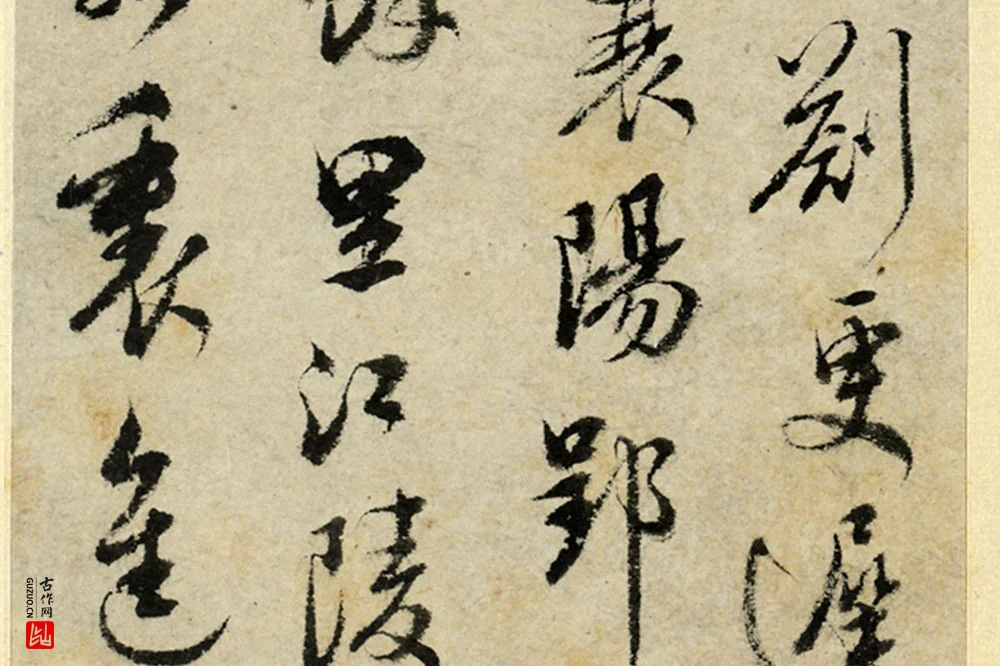 劄更遲
襄陽郢
里江陵
進
古作网
GUZUO.CN